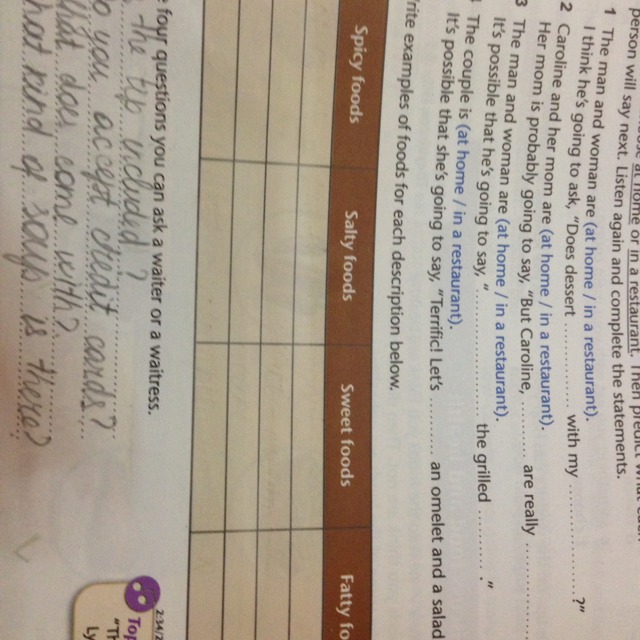 person will say next. Listen again and complete the statements.
at home or in a restaurant. Then predict
1 The man and woman are (at home / in a restaurant).
I think he's going to ask, "Does dessert .......... with my ..............?"
2 Caroline and her mom are (at home / in a restaurant).
Her mom is probably going to say, "But Caroline, .......... are really ..............
3 The man and woman are (at home / in a restaurant).
It's possible that he's going to say, ".............................. the grilled .........."
The couple is (at home / in a restaurant).
It's possible that she's going to say, "Terrific! Let's .......... an omelet and a salad
rite examples of foods for each description below.
Spicy foods Salty foods Sweet foods Fatty fo
four questions you can ask a waiter or a waitress.
the tip included?
o you accept credit cards?
come with?
hat kind of soups is there?
Top
"Th
Ly